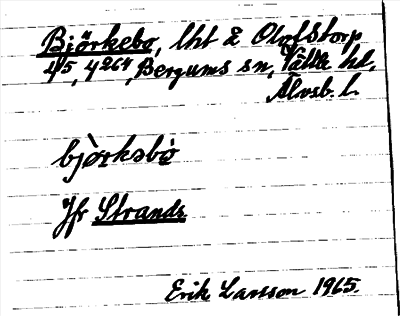 Björkebo, lht å Olofstorp
4/5, 4264, Bergums sn, Vättle hd,
Älvsb. l.
bj̀ørksbọ
Jfr Strands
Erik Larsson 1965.